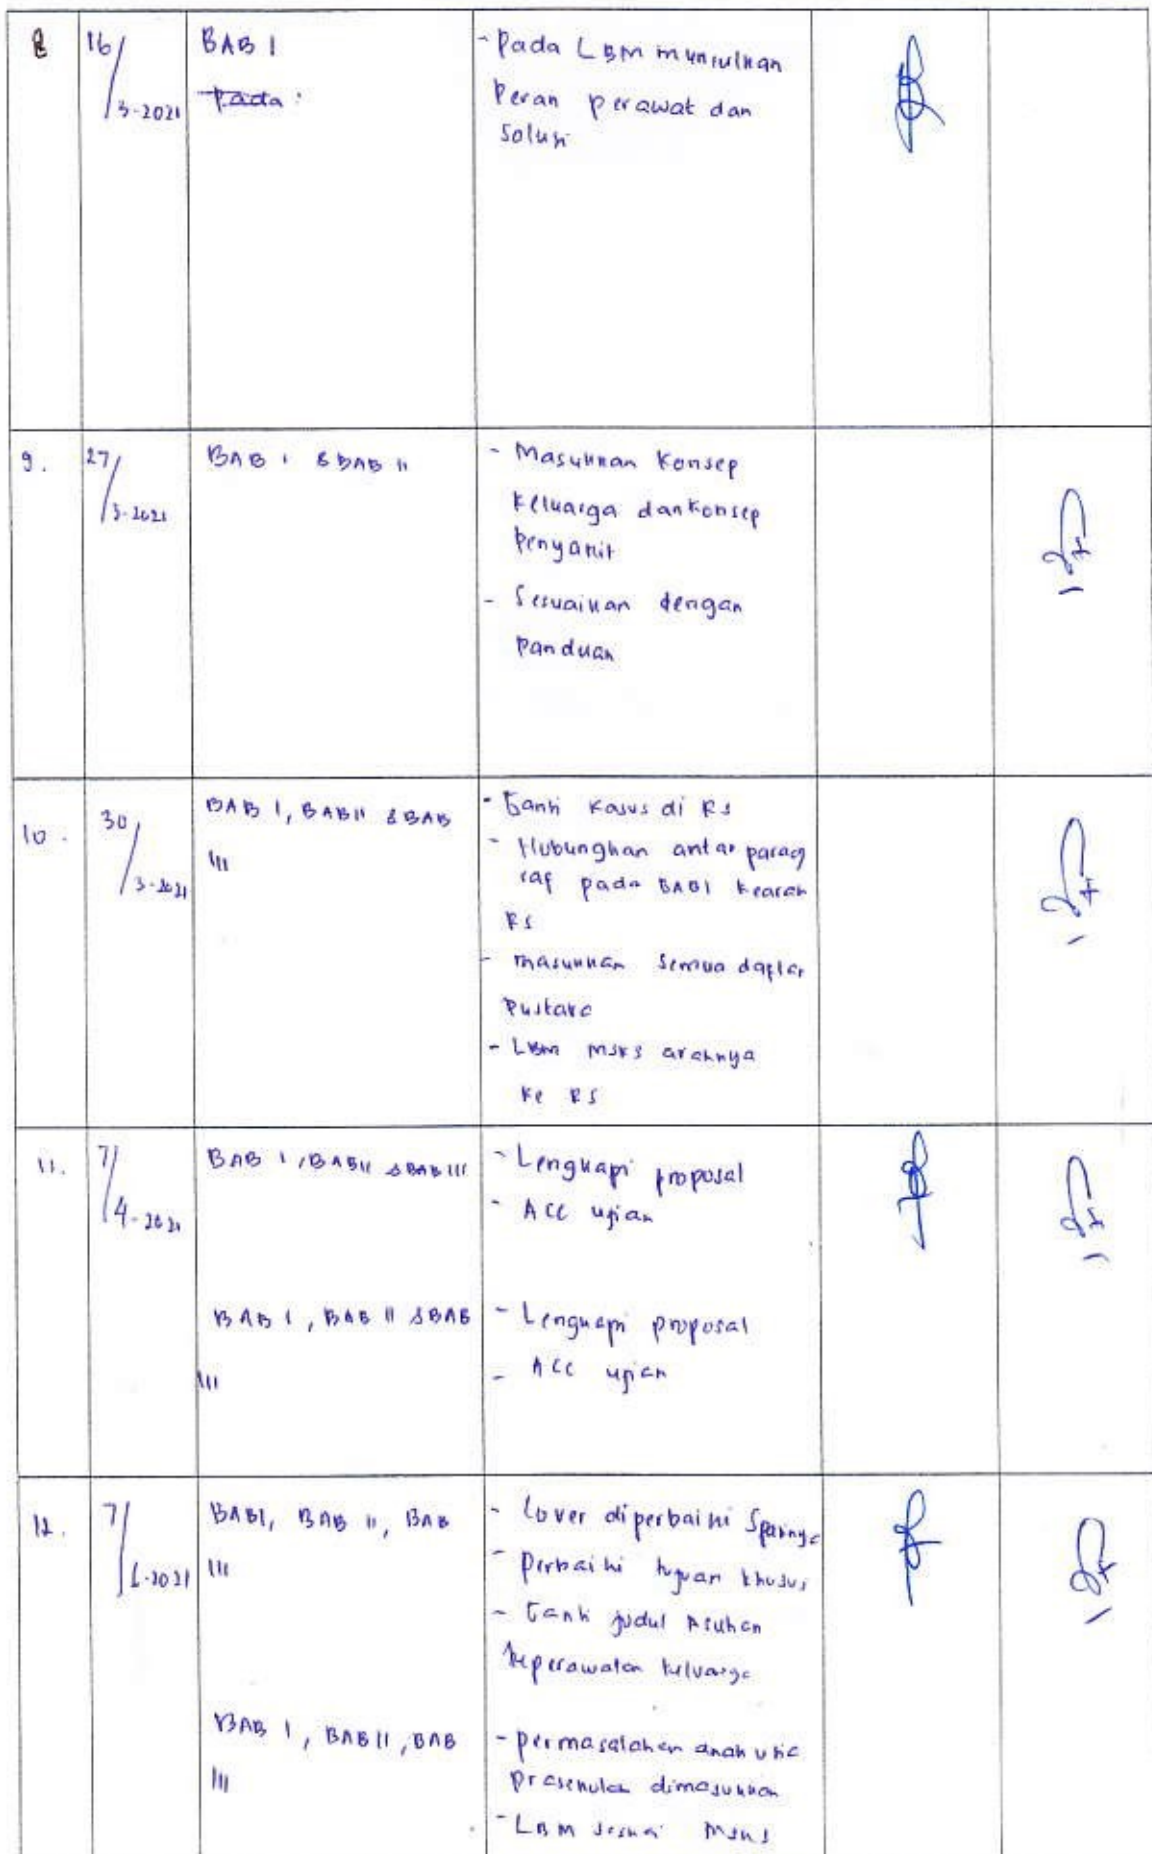 8
16/3-2021
BAB I
Pada :
- Pada LBM munculkan
Peran perawat dan
Solusi
9.
27/3-2021
BAB I & BAB II
- Masukkan Konsep
Keluarga dan Konsep
Penyakit
- Sesuaikan dengan
Panduan
10.
30/3-2021
BAB I, BAB II & BAB
III
- Ganti Kasus di RS
- Hubungkan antar parag
raf pada BAB I kearah
RS
- masukkan semua daftar
Pustaka
- LBM MSKS arahnya
ke RS
11.
7/4-2021
BAB I, BAB II & BAB III
- Lengkapi proposal
- ACC ujian
BAB I, BAB II & BAB
III
- Lengkapi proposal
- ACC ujian
12.
7/6-2021
BAB I, BAB II, BAB
III
- Cover diperbaiki Spasinya
- Perbaiki tujuan khusus
- Ganti judul Asuhan
Keperawatan keluarga
BAB I, BAB II, BAB
III
- permasalahan anak usia
prasekolah dimasukkan
- LBM sesuai MSKS